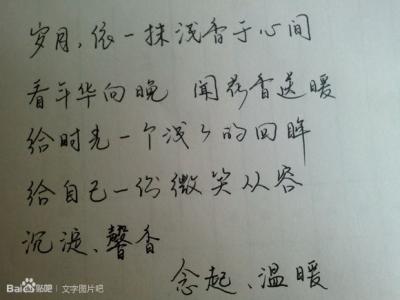 岁月，依一抹浅香于心间
看年华向晚 闻花香送暖
给时光一个浅浅的回眸
给自己一份微笑从容
沉淀、馨香
念起、温暖
Bai贴吧 | 文字图片吧